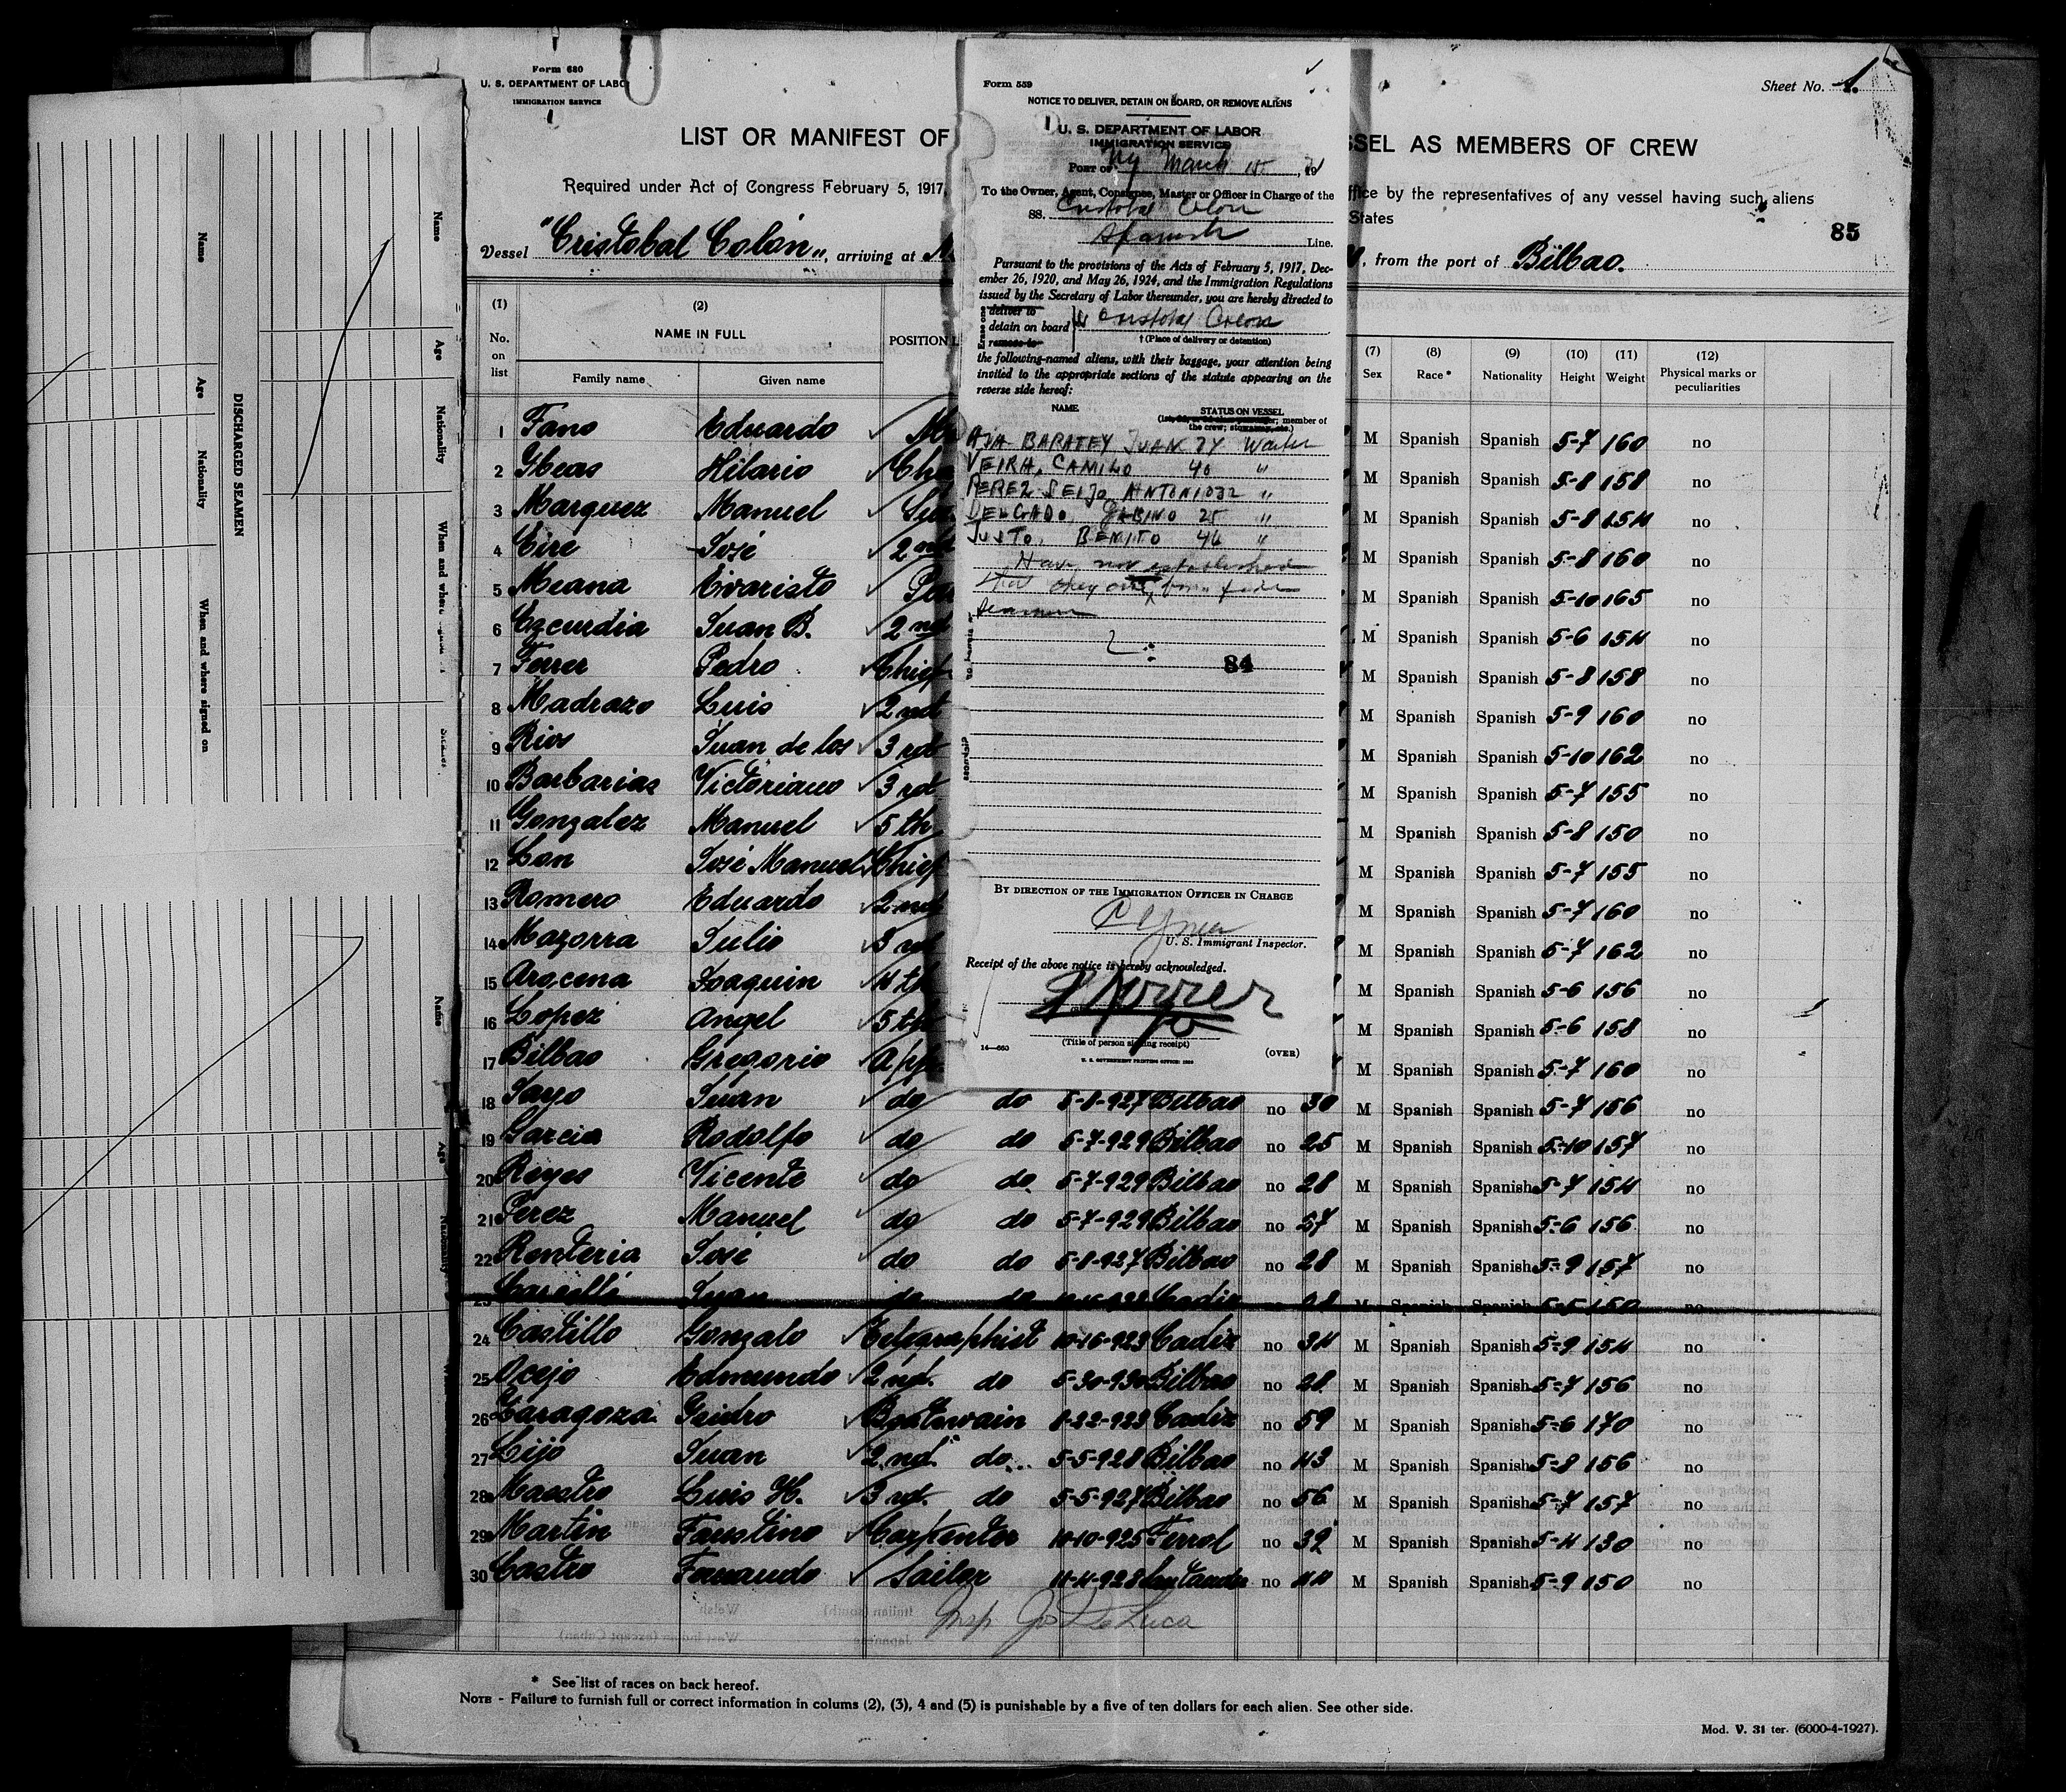 Form 680
U. S. DEPARTMENT OF LABO
IMMIGRATION SERVICE
Sheet No. 1.
LIST OR MANIFEST OF
SSEL AS MEMBERS OF CREW
Required under Act of Congress February 5, 1917,
ffice by the representatives of any vessel having such aliens
States
85
Vessel "Cristobal Colón", arriving at N
, from the port of Bilbao.
(1) (2) (7) (8) (9) (10) (11) (12)
No. on list NAME IN FULL POSITION Sex Race* Nationality Height Weight Physical marks or peculiarities
Family name Given name
1 Fano Eduardo M Spanish Spanish 5-7 160 no
2 Gbeas Hilario M Spanish Spanish 5-8 158 no
3 Marquez Manuel M Spanish Spanish 5-8 154 no
4 Cire José 2nd M Spanish Spanish 5-8 160 no
5 Meana Evaristo M Spanish Spanish 5-10 165 no
6 Ezcurdia Juan B. 2nd M Spanish Spanish 5-6 154 no
7 Ferrer Pedro Chief M Spanish Spanish 5-8 158 no
8 Madrazo Luis 2nd M Spanish Spanish 5-9 160 no
9 Rios Juan de los 3rd M Spanish Spanish 5-10 162 no
10 Barbarias Victoriano 3rd M Spanish Spanish 5-7 155 no
11 Gonzalez Manuel 5th M Spanish Spanish 5-8 150 no
12 Lan José Manuel Chief M Spanish Spanish 5-7 155 no
13 Romero Eduardo 2nd M Spanish Spanish 5-7 160 no
14 Mazorra Julio 3rd M Spanish Spanish 5-7 162 no
15 Arocena Joaquin 4th M Spanish Spanish 5-6 156 no
16 Lopez Angel 5th M Spanish Spanish 5-6 158 no
17 Bilbao Gregorio App M Spanish Spanish 5-7 160 no
18 Sayo Juan do do 5-8-927 Bilbao no 30 M Spanish Spanish 5-7 156 no
19 Garcia Rodolfo do do 5-7-929 Bilbao no 25 M Spanish Spanish 5-10 157 no
20 Reyes Vicente do do 5-7-929 Bilbao no 28 M Spanish Spanish 5-7 154 no
21 Perez Manuel do do 5-7-929 Bilbao no 57 M Spanish Spanish 5-6 156 no
22 Renteria José do do 5-8-927 Bilbao no 28 M Spanish Spanish 5-9 157 no
23 Juan do do Cadiz no 28 M Spanish Spanish 5-5 150 no
24 Castillo Gonzalo Telegraphist 10-16-923 Cadiz no 34 M Spanish Spanish 5-9 154 no
25 Ocejo Edmundo 2nd. do 5-30-930 Bilbao no 28 M Spanish Spanish 5-7 156 no
26 Zaragoza Isidro Boatswain 8-22-923 Cadiz no 59 M Spanish Spanish 5-6 170 no
27 Lijo Juan 2nd. do 5-5-928 Bilbao no 43 M Spanish Spanish 5-8 156 no
28 Maestro Luis H. 3rd. do 5-5-927 Bilbao no 56 M Spanish Spanish 5-7 157 no
29 Martin Faustino Carpenter 10-10-925 Ferrol no 39 M Spanish Spanish 5-4 130 no
30 Castro Fernando Sailor 11-11-928 Santander no 44 M Spanish Spanish 5-9 150 no
Insp. Jos De Luca
* See list of races on back hereof.
NOTE - Failure to furnish full or correct information in colums (2), (3), 4 and (5) is punishable by a five of ten dollars for each alien. See other side.
Mod. V. 31 ter. (6000-4-1927).
Form 559
NOTICE TO DELIVER, DETAIN ON BOARD, OR REMOVE ALIENS
U. S. DEPARTMENT OF LABOR
IMMIGRATION SERVICE
PORT OF NY March 15, 1931
To the Owner, Agent, Consignee, Master or Officer in Charge of the
SS. Cristobal Colon
Spanish Line.
Pursuant to the provisions of the Acts of February 5, 1917, Dec-
ember 26, 1920, and May 26, 1924, and the Immigration Regulations
issued by the Secretary of Labor thereunder, you are hereby directed to
Erase one
deliver to
detain on board Cristobal Colon
remove to
† (Place of delivery or detention)
the following-named aliens, with their baggage, your attention being
invited to the appropriate sections of the statute appearing on the
reverse side hereof:
NAME STATUS ON VESSEL
member of
the crew; stowaway, etc.)
AJA BARATEY JUAN 34 Waiter
VEIRA, CAMILO 40 "
PEREZ SEIJO ANTONIO 32 "
DELGADO, GABINO 25 "
JUSTO, BENITO 46 "
Have not established
that they are bona fide
seamen
84
BY DIRECTION OF THE IMMIGRATION OFFICER IN CHARGE
U. S. Immigrant Inspector.
Receipt of the above notice is hereby acknowledged.
(Title of person signing receipt)
14—660
U. S. GOVERNMENT PRINTING OFFICE: 1930
(OVER)
DISCHARGED SEAMEN
Name Age Nationality When and where signed on
Name Age Nationality When and where
Name Age Nationality